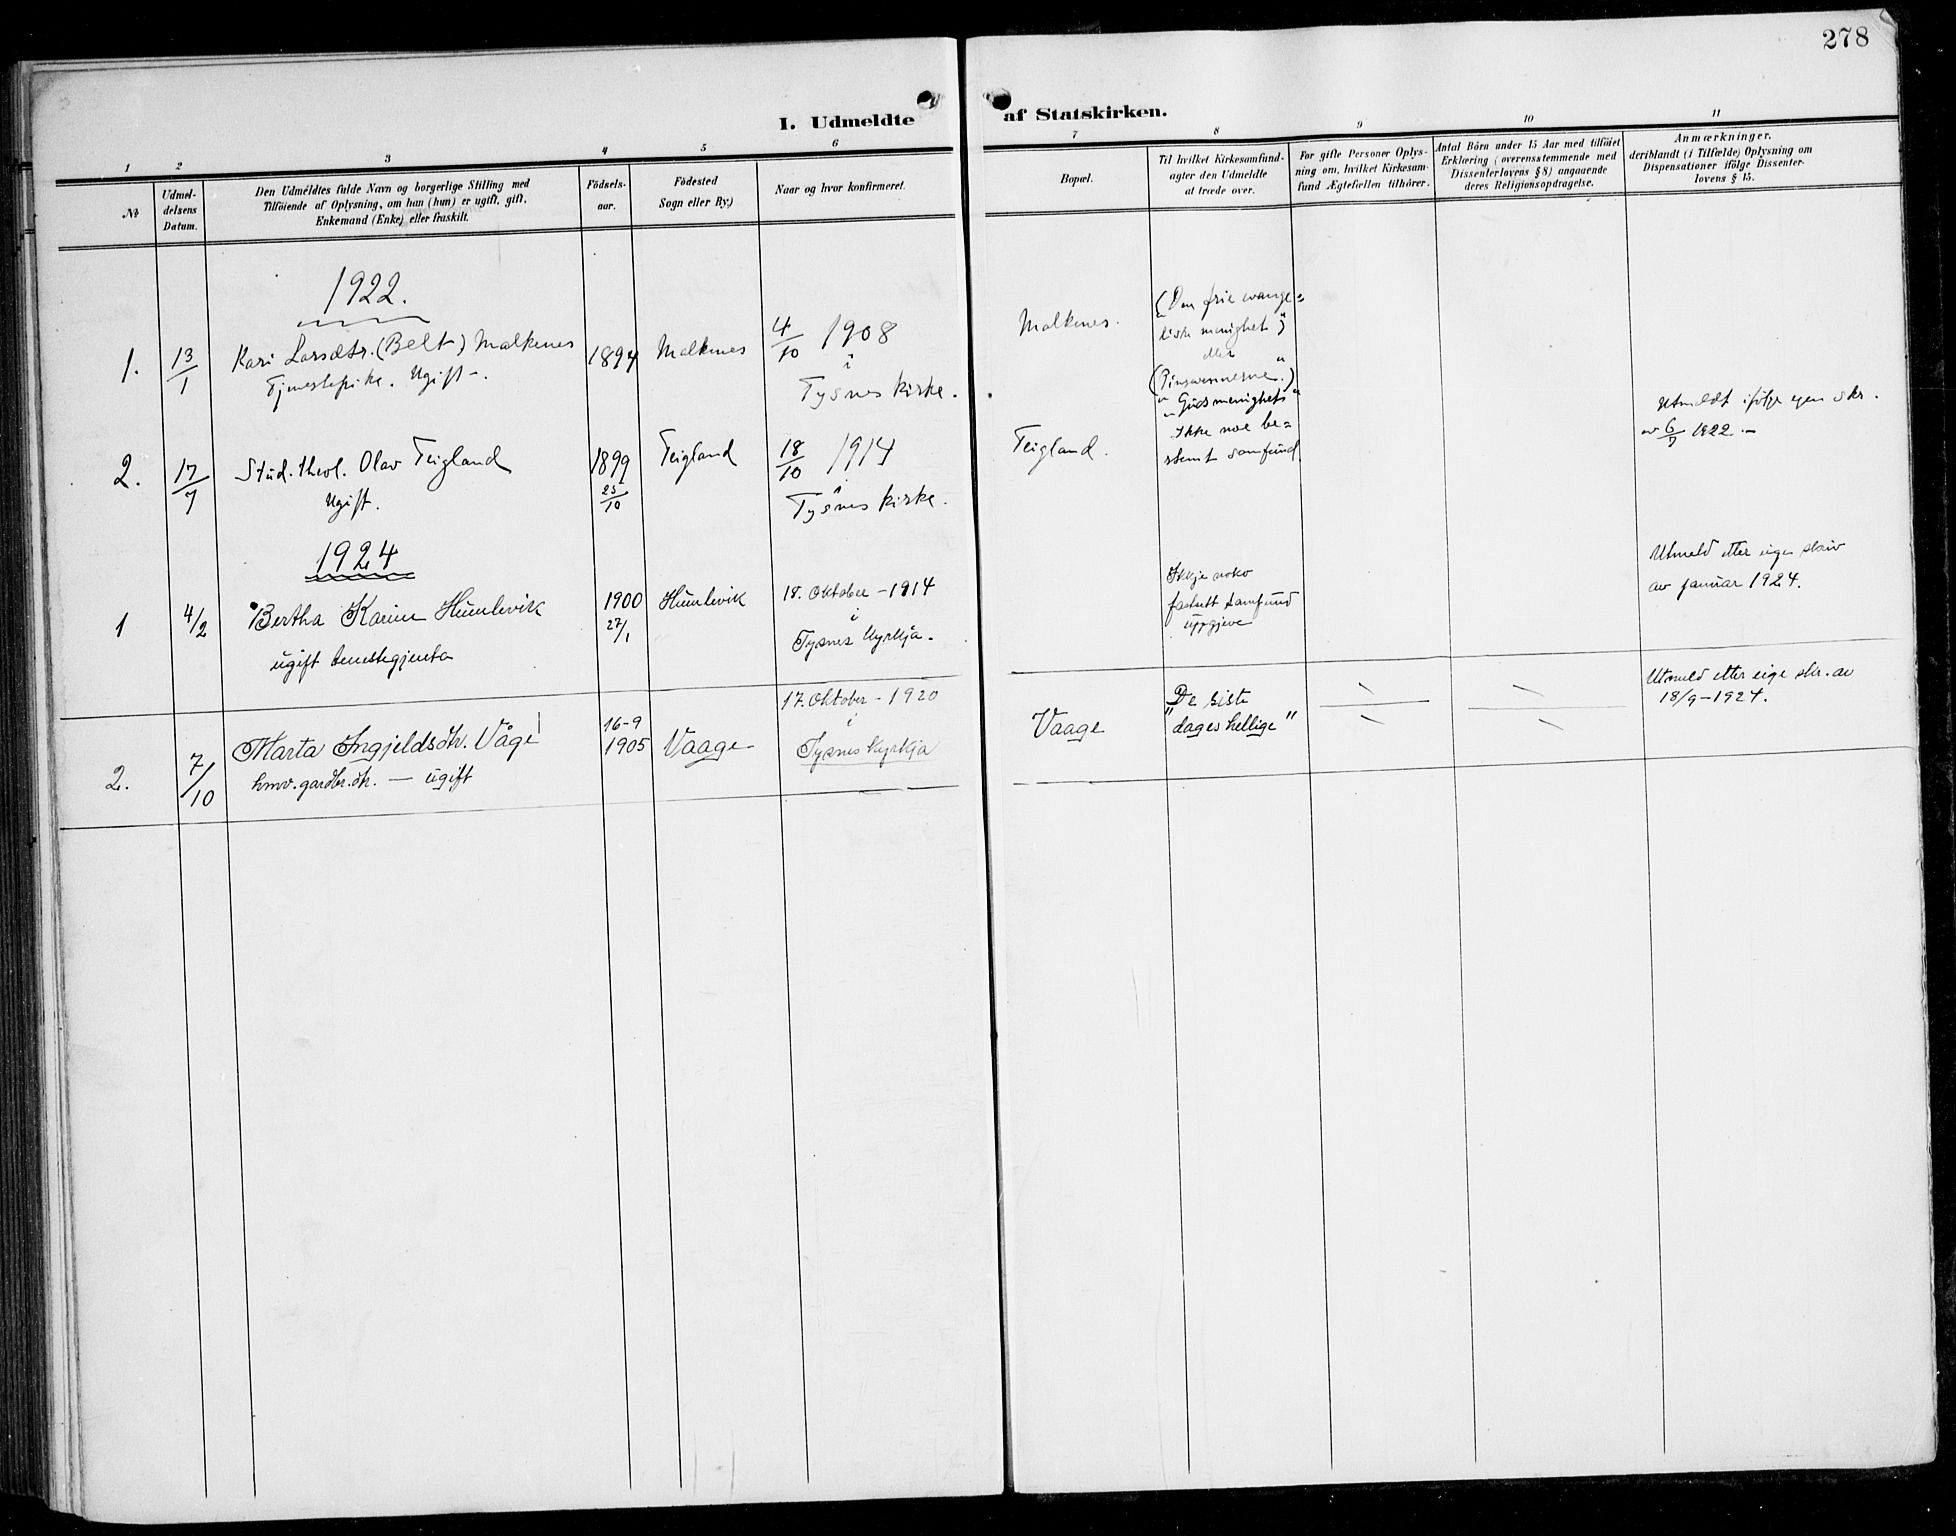 278
I. Udmeldte af Statskirken.
1 2 3 4 5 6 7 8 9 10 11
№
Udmel-
delsens
Datum.
Den Udmeldtes fulde Navn og borgerlige Stilling med
Tilföiende af Oplysning, om han (hun) er ugift, gift,
Enkemand (Enke) eller fraskilt.
Födsels-
aar.
Födested
Sogn eller By.)
Naar og hvor konfirmeret.
Bopæl.
Til hvilket Kirkesamfund-
agter den Udmeldte
at træde over.
For gifte Personer Oplys-
ning om, hvilket Kirkesam-
fund Ægtefællen tilhörer.
Antal Börn under 15 Aar med tilföiet
Erklæring (overensstemmende med
Dissenterlovens § 8) angaaende
deres Religionsopdragelse.
Anmærkninger.
deriblandt (i Tilfælde) Oplysning om
Dispensationer ifölge Dissenter-
lovens § 15.
1922.
1.
13/1
Kari Larsdtr. (Belt) Malkenes
Tjenestepike. Ugift -.
1894
Malkenes
4/10 1908
i
Tysnes kirke.
Malkenes.
(„Den frie evange=
liske menighet")
eller
(„Pinsevennerne.")
„Guds menighet"
2.
17/7
Stud. theol. Olav Teigland
Ugift.
1899
25/10
Teigland
18/10 1914
i
Tysnes kirke.
Teigland.
Ikke noe be=
stemt samfund.
Utmeldt ifölge egen skr.
av 6/7 1922. -
1924
1
4/2
Bertha Karine Humlevik
ugift tenestegjenta
1900
27/1
Humlevik
18. Oktober - 1914
i
Tysnes Kyrkja.
Ikkje noko
fastutt samfund
uppgjeve
Utmeld etter eigen skriv
av januar 1924.
2.
7/10
Marta Ingjeldsdtr. Våge
hmv. gardbr. dtr. — ugift
16-9
1905
Vaage
17. Oktober - 1920
i
Tysnes Kyrkja
Vaage
De siste
"dages hellige"
Utmeld etter eige skr. av
18/9 - 1924.